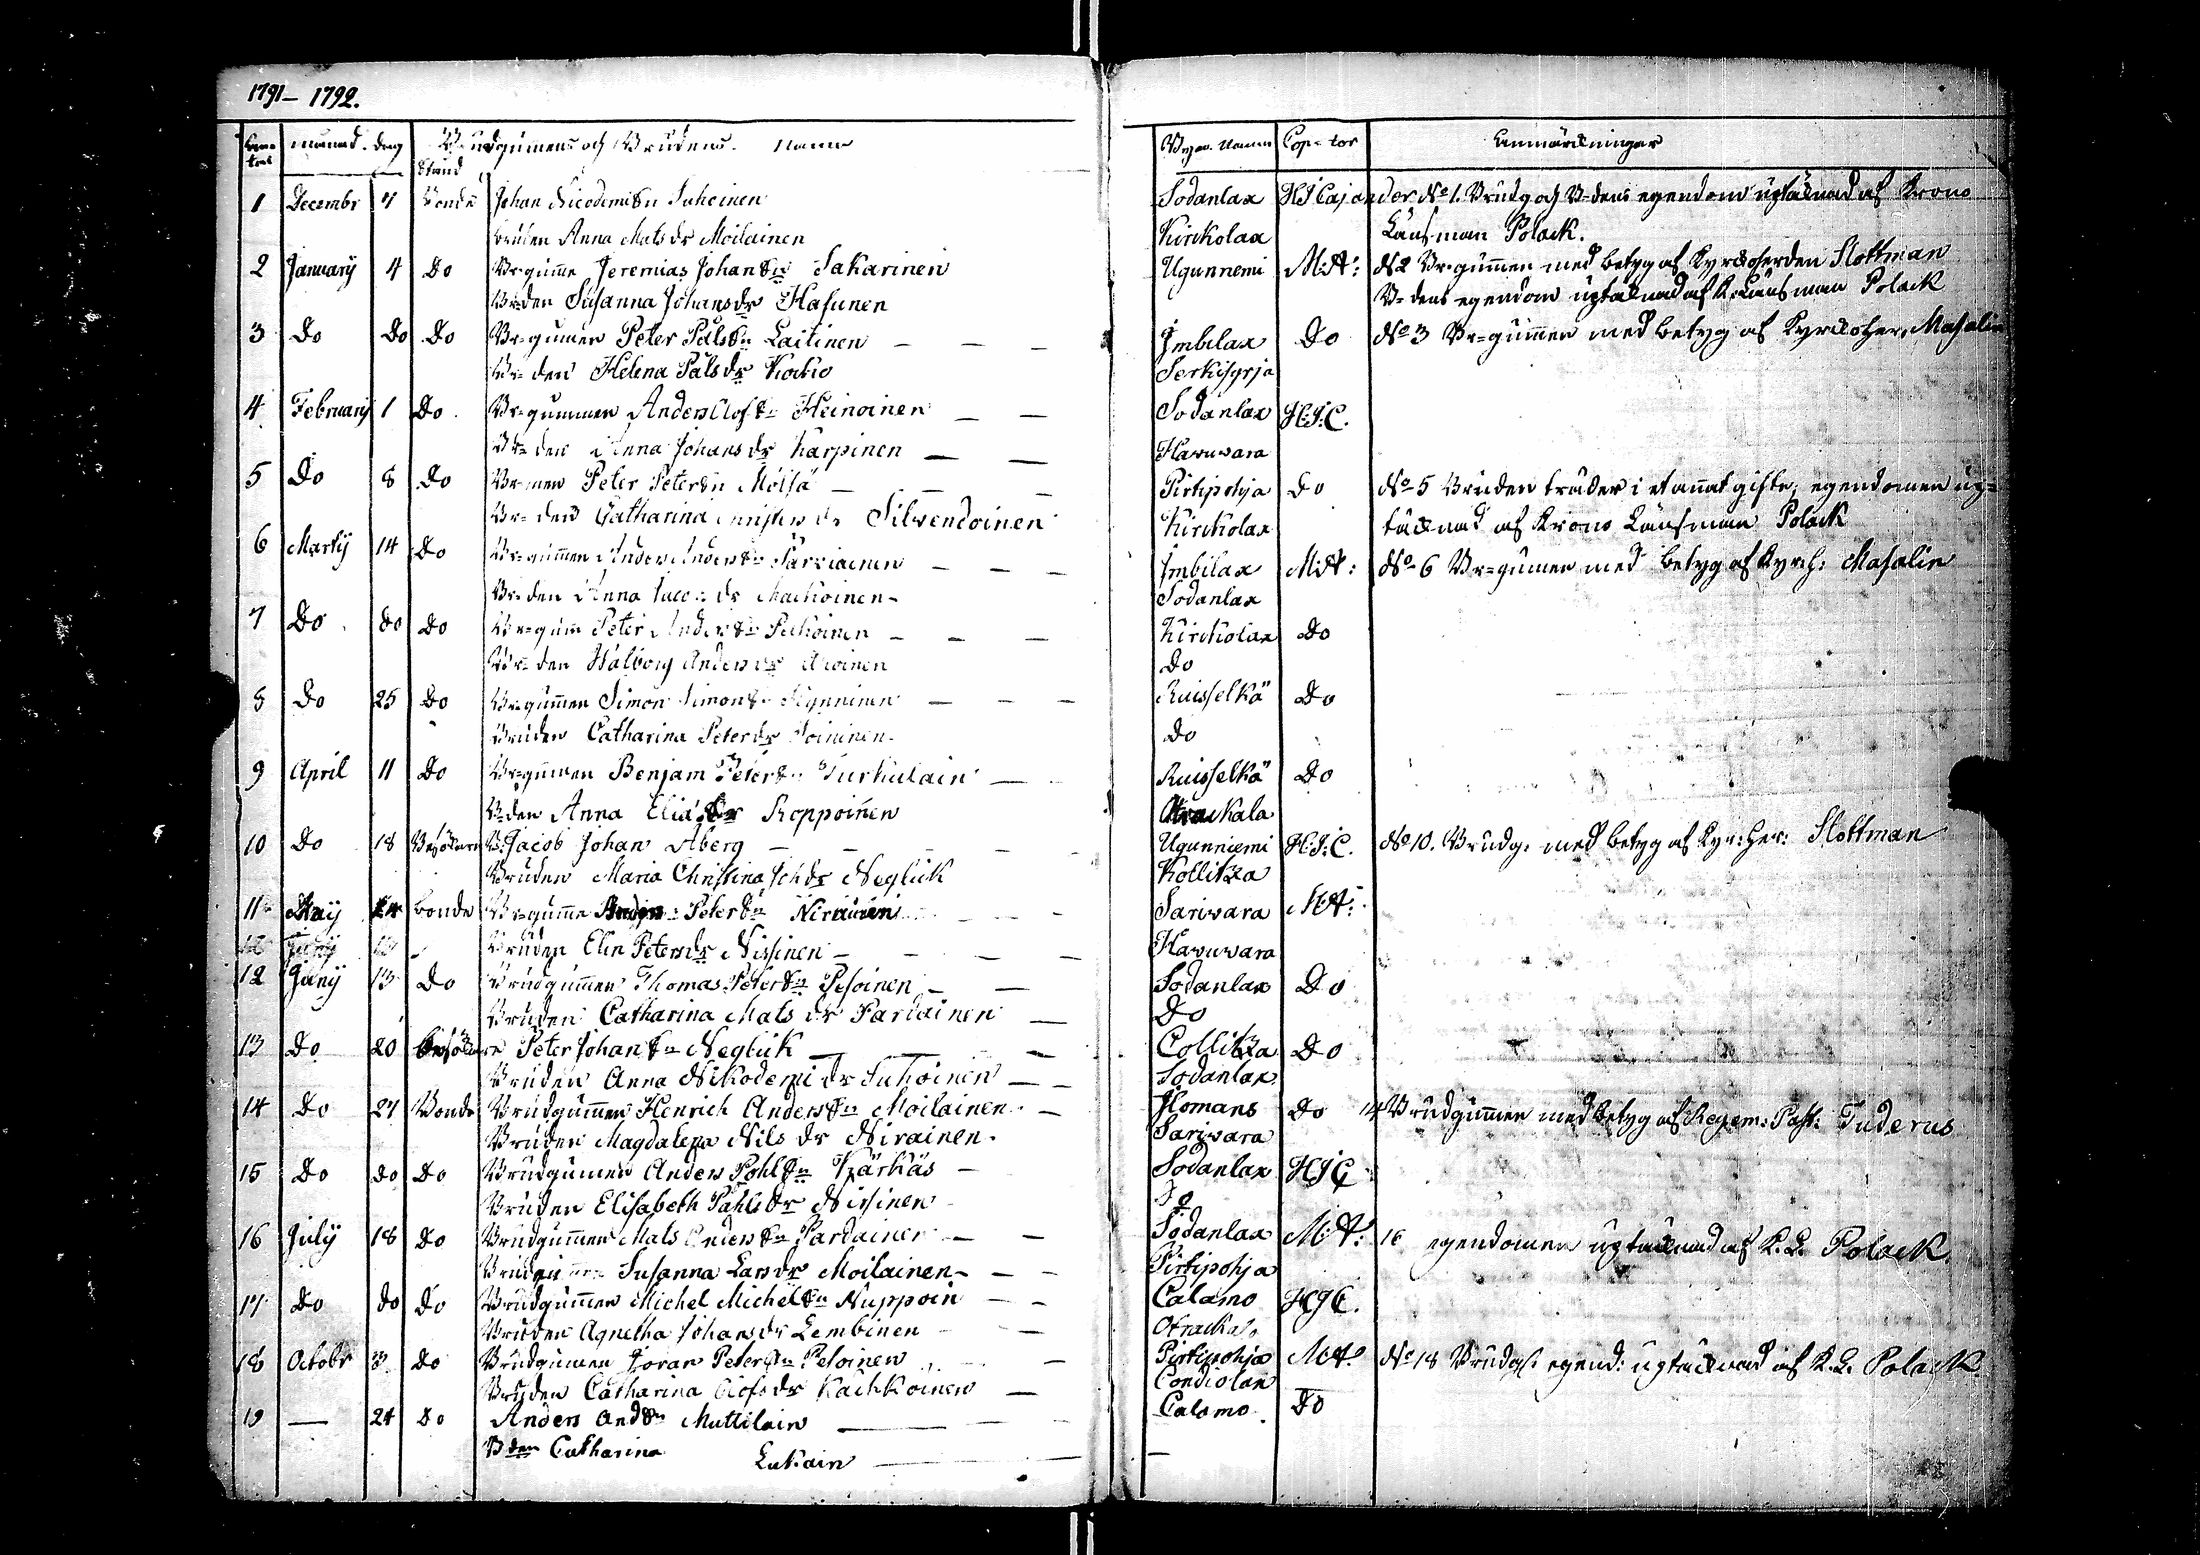 1791– 1792.
månad. dag Stånd Brudgumens och Brudens Namn Byar. Namn Cop-tor Anmärkningar
1 Decembr 7 Bonde Johan Nicodemi Sn Suhoinen Sodanlax HJ Cajander No 1. Brudg och B-dens egendom uptäcknad af Krono
bruden Anna Mats dr Moilainen Kirckolax Länsman Polack.
2 January 4 Do Br-gumme Jeremias Johan Sn Sakarinen Ugunnemi M:A: N2 Br-gummen med betyg af Kyrckoherden Slottman
Br-den Susanna Johans dr Hasunen B-dens egendom uptäcknad af K. Länsman Polack
3 Do Do Do Br-gumen Peter Påls Sn Laitinen — — — Imbilax Do No 3 Br-gummen med betyg af Kyrckoher. Masalin
Br-den Helena Påls dr Kockio Serkisyrja
4 February 1 Do Br-gummen Anders Olof Sn Heinoinen — — Sodanlax H:J:C.
Br-den Anna Johans dr Karpinen — — Hawuwara
5 Do 8 Do Br-men Peter Peter Sn Möisä — — — Pirtipohja Do No 5 Bruden träder i et annat gifte, egendomen up-
Br-den Catharina dr Silwendoinen Kirckolax täcknad af Krono Länsman Polack
6 Martij 14 Do Br-gummen Anders Anders Sn — — — Imbilax M:A: No 6 Br-gumen med betyg af Kyrch: Masalin
Br-den Anna dr Sodanlax
7 Do do Do Br-gumm Peter Anders Sn — — — Kirckolax Do
Br-den Walborg Anders dr Do
8 Do 25 Do Br-gummen Simon Simon Sn — — — Ruisselkä Do
Bruden Catharina Peter dr Do
9 April 11 Do Br-gumen Benjam Peter Sn Turkulain — — Ruisselkä Do
B-den Anna Elias dr Roppoinen Otrackala
10 Do 18 B: Jacob Johan Åberg — — — Ugunniemi H:J:C. No 10. Brudg. med betyg af Kyr:her: Slottman
Bruden Maria Christina Joh dr Neglick Kollitza
11 May bonde Br-gumme Peter Sn Nirainen — — Sariwara M:A:
Bruden Elin Peters dr Nissinen — — — Hawuwara
12 Juny 13 Do Brudgummen Thomas Peter Sn Pesoinen — — Sodanlax Do
Bruden Catharina Mats dr Pardainen — Do
13 Do 20 Peter Johan Sn Neglick — — — Collitza Do
Bruden Anna Nikodemi dr Suhoinen — — Sodanlax
14 Do 27 Bonde Brudgummen Henrich Anders Sn Moilainen — Ilomans Do 14 Brudgummen med betyg af Regem: Past: Tuderus
Bruden Magdalena Nils dr Nirainen. Sariwara
15 Do do Do Brudgumen Anders Pohl Sn Kärkäs — Sodanlax HJC
Bruden Elisabeth Pahls dr Nissinen Do
16 July 18 Do Brudgummen Mats Anders Sn Pardainen — — Sodanlax M:A: 16 egendomen uptäcknad af K. L. Polack.
Bruden Susanna Lars dr Moilainen — — Pirtipohja
17 Do do Do Brudgummen Michel Michel Sn Nuppoin — — Calamo HJC.
Bruden Agnetha Johans dr Lembinen — — Otrackala
18 Octobr 3 Do Brudgumen Joran Peter Sn Peloinen — Pirtipohja M:A: No 18 Brudgs: egend: uptäcknad af K. L. Polack.
Bruden Catharina Olofs dr Kackkoinen — Condiolax
19 — 24 Do Anders And Sn Muttilain — Calamo Do
B den Catharina Lukain — —